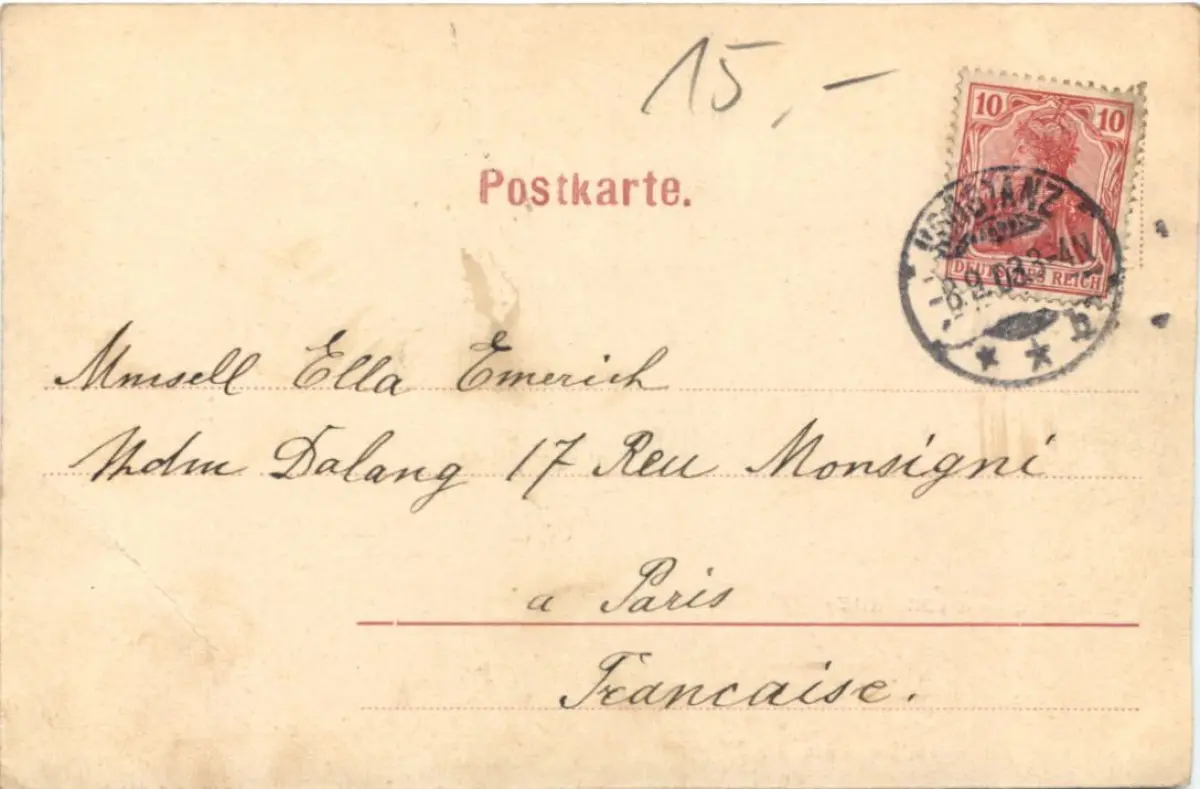 15,-
Postkarte.
10 10
DEUTSCHES REICH
KONSTANZ
-8.9.03.3-4N
b
Mmsell Ella Emerich
Mdm Dalang 17 Reu Monsigni
a Paris
Francaise.